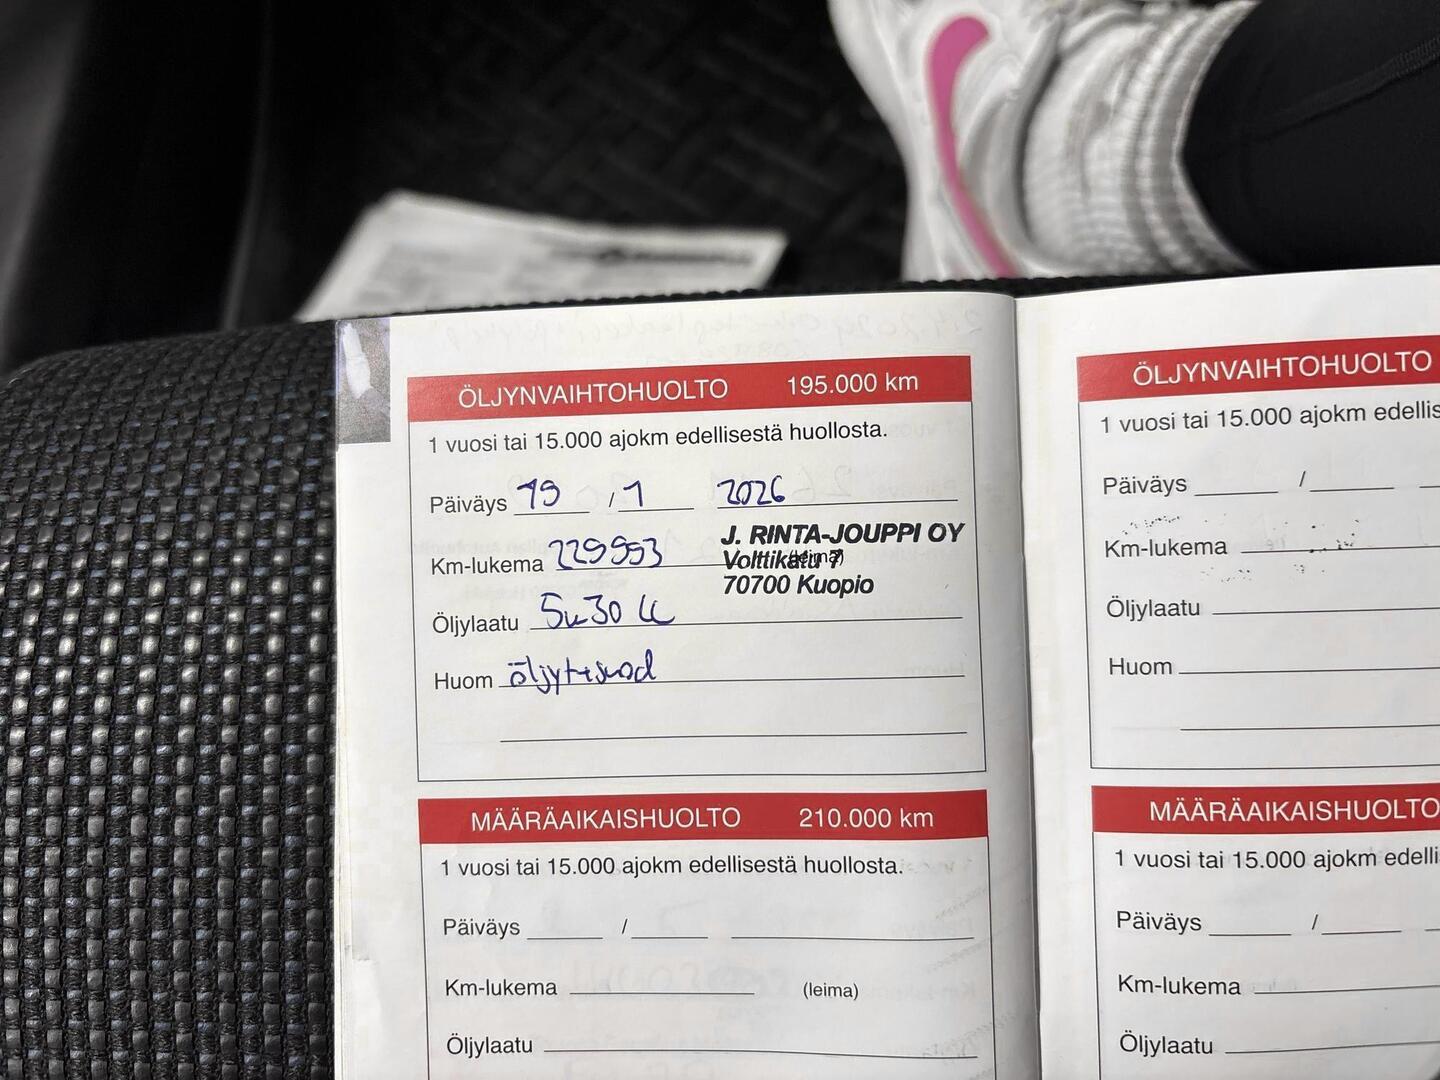 ÖLJYNVAIHTOHUOLTO 195.000 km
1 vuosi tai 15.000 ajokm edellisestä huollosta.
Päiväys 19 / 1 2026
Km-lukema 229953
J. RINTA-JOUPPI OY
Volttikatu 7
(leima)
70700 Kuopio
Öljylaatu 5w30 LL
Huom
MÄÄRÄAIKAISHUOLTO 210.000 km
1 vuosi tai 15.000 ajokm edellisestä huollosta.
Päiväys /
Km-lukema (leima)
Öljylaatu
ÖLJYNVAIHTOHUOLTO
1 vuosi tai 15.000 ajokm edellis
Päiväys /
Km-lukema
Öljylaatu
Huom
MÄÄRÄAIKAISHUOLTO
1 vuosi tai 15.000 ajokm edelli
Päiväys /
Km-lukema
Öljylaatu